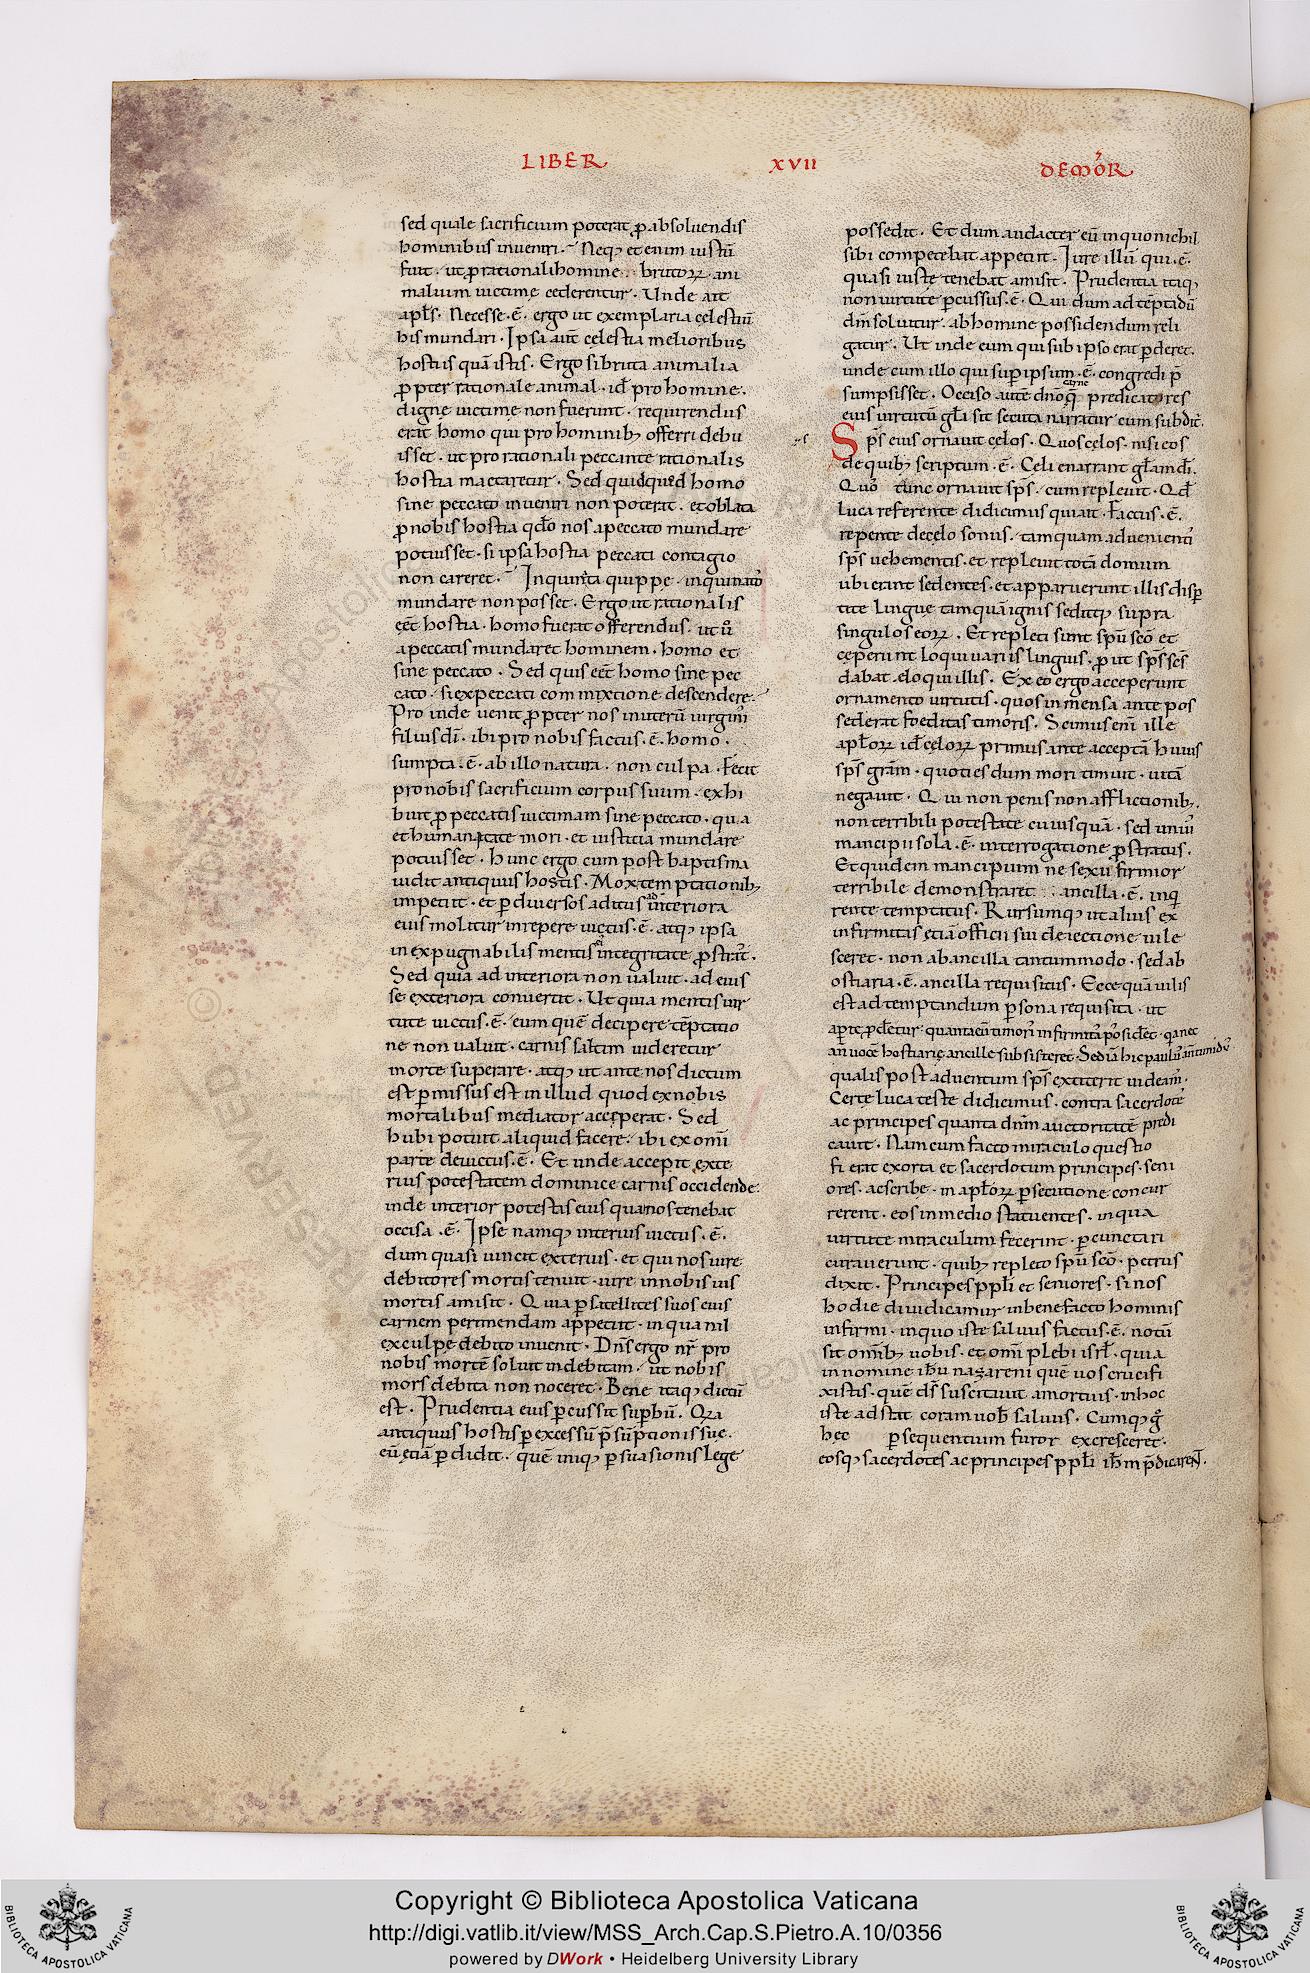 LIBER XVII DE MOR
sed quale sacrificium poterat ꝓ absoluendis
hominibus inueniri. Neq; et enim iustū
fuit. ut ꝓ rationali homine brutoꝝ ani
malium uictimę cederentur. Unde ait
apl̄s. Necesse .ē. ergo ut exemplaria celestiū
his mundari. Ipsa aut̄ cęlestia melioribus
hostiis quā istis. Ergo si bruta animalia
ꝓpter rationale animal. id̄ pro homine.
digne uictimę non fuerunt. requirendus
erat homo qui pro hominib; offerri debu
isset. ut pro rationali peccante rationalis
hostia mactaretur. Sed quid quod homo
sine peccato inueniri non poterat. et oblata
ꝓ nobis hostia qd̄o nos a peccato mundare
potuisset. si ipsa hostia peccati contagio
non careret. Inquinata quippe inquinatos
mundare non posset. Ergo ut rationalis
eēt hostia. homo fuerat offerendus. ut u̅
a peccatis mundaret hominem. homo et
sine peccato. Sed quis eēt homo sine pec
cato. si ex peccati commixtione descendere.
Pro inde uenit ꝓpter nos in uterū uirginis
filius dī. ibi pro nobis factus .ē. homo.
sumpta .ē. ab illo natura. non culpa. Fecit
pro nobis sacrificium corpus suum. exhi
buit ꝓ peccatis uictimam sine peccato. qua
et humanitate mori. et iusticia mundare
potuisset. Hunc ergo cum post baptisma
uidit antiquus hostis. Mox temptationib;
impetiit. et ꝑ diuersos aditus ad interiora
eius molitur inrepere uictus .ē. atq; ipsa
inexpugnabilis mentis integritate ꝓstrat̄.
Sed quia ad interiora non ualuit. ad eius
se exteriora conuertit. Ut quia mentis uir
tute uictus .ē. eum quē decipere tēptatio
ne non ualuit. carnis saltim uideretur
morte superare. atq; ut ante nos dictum
est ꝑmissus est in illud quod ex nobis
mortalibus mediator acceperat. Sed
hubi potuit aliquid facere. ibi ex omī
parte deuictus .ē. Et unde accepit exte
rius potestatem dominice carnis occidende.
inde interior potestas eius qua nos tenebat
occisa .ē. Ipse namq; interius uictus .ē.
dum quasi uincit exterius. et qui nos iure
debitores mortis tenuit. iure in nobis ius
mortis amisit. Quia ꝑ satellites suos eius
carnem perimendam appetiit. in qua nil
ex culpe debito inuenit. Dn̄s ergo nr̄ pro
nobis mortē soluit indebitam. ut nobis
mors debita non noceret. Bene itaq; dictū
est. Prudentia eius ꝑcussit suꝑbū. Qa
antiquus hostis ꝑ excessū p̄sūptionis sue.
eū etiā ꝑdidit. quē iniq; ꝑsuasionis lege
possedit. Et dum audacter eū in quo nichil
sibi competebat appetiit. Iure illū qui .ē.
quasi iuste tenebat amisit. Prudentia itaq;
non uirtute ꝑcussus .ē. Qui dum ad tēptādū
dm̄ soluitur. ab homine possidendum reli
gatur. Ut inde eum qui sub ipso erat ꝑderet.
unde cum illo qui suꝑ ipsum .ē. congredi p̄
sumpsisset. Occiso autē dn̄o carne predicatores
eius uirtutū gl̄a sit secuta narratur cum subdit̄.
Sps̄ eius ornauit cęlos. Quos cęlos. nisi eos
de quib; scriptum .ē. Celi enarrant gl̄am dī.
Quos tunc ornauit sps̄. cum repleuit. Qd̄
Luca referente didicimus qui ait. Factus .ē.
repente de cęlo sonus. tamquam aduenientis
sps̄ uehementis. et repleuit totā domum
ubi erant sedentes. et apparuerunt illis disꝑ
tite linguę tamquā ignis seditq; supra
singulos eoꝝ. Et repleti sunt spū sc̄o et
cęperunt loqui uariis linguis. ꝓut sps̄ sc̄s
dabat eloqui illis. Ex eo ergo acceperunt
ornamento uirtutis. quos in mensa ante pos
sederat foeditas timoris. Scimus enī ille
apl̄oꝝ id̄ cęloꝝ primus ante acceptā huius
sps̄ gr̄am. quotiens dum mori timuit. uitā
negauit. Qui non penis non afflictionib;.
non terribili potestate cuiusquā. sed unius
mancipii sola .ē. interrogatione ꝓstratus.
Et quidem mancipium ne sexu firmior
terribile demonstraret ancilla .ē. inq
rente temptatus. Rursumq; ut alius ex
infirmitas etiā officii sui deiectione uile
sceret. non ab ancilla tantummodo. sed ab
ostiaria .ē. ancilla requisitus. Ecce quā uilis
est ad temptandum ꝑsona requisita. ut
aꝑte ꝓdetur quanta eū timoris infirmitas possideret. q̄ nec
an̄ uocē hostiarię ancille subsisteret. Sed iā hic paulū an̄ timidus
qualis post aduentum sps̄ extiterit uideam̄.
Certę luca teste didicimus. contra sacerdotes
ac principes quanta dnm̄ auctoritate predi
cauit. Nam cum facto miraculo questio
fi erat exorta et sacerdotum principes. seni
ores. ac scribe. in apl̄oꝝ ꝑsecutione concur
rerent. eos in medio statuentes. in qua
uirtute miraculum fecerint. ꝑcunctari
curauerunt. quib; repleto spū sc̄o. petrus
dixit. Principes ppl̄i et seniores. si nos
hodie diuidicamur in benefacto hominis
infirmi. in quo iste saluus factus .ē. notū
sit omīb; uobis. et omī plebi isrl̄. quia
in nomine ih̄u nazareni quē uos crucifi
xistis. quē ds̄ suscitauit a mortuis. in hoc
iste adstat coram uob̄ saluus. Cumq; g̊
hęc ꝑsequentium furor excresceret.
eosq; sacerdotes ac principes ppl̄i ih̄m p̄dicarent.
Copyright © Biblioteca Apostolica Vaticana
http://digi.vatlib.it/view/MSS_Arch.Cap.S.Pietro.A.10/0356
powered by DWork • Heidelberg University Library
BIBLIOTECA APOSTOLICA VATICANA
BIBLIOTECA APOSTOLICA VATICANA